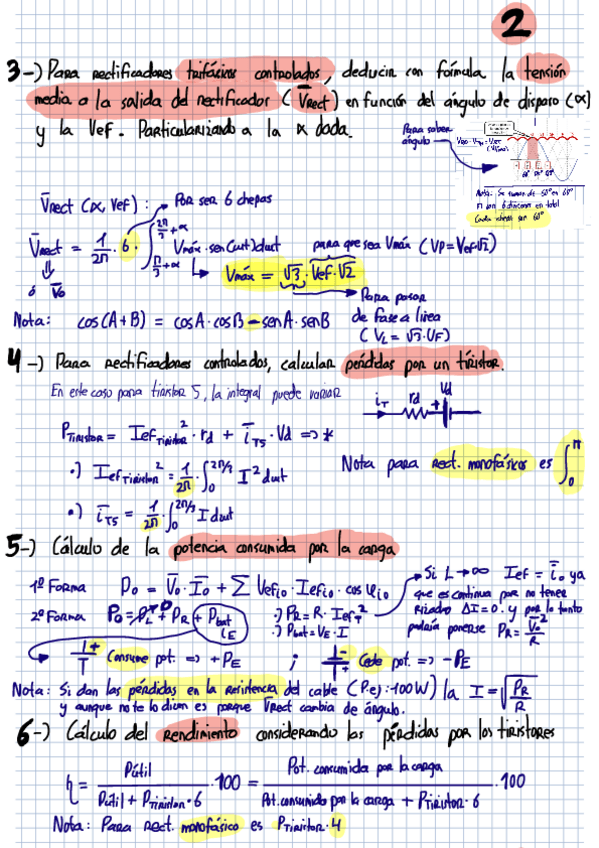 2
3-) Para rectificadores trifásicos controlados, deducir con fórmula la tensión
media a la salida del rectificador (V̅rect) en función del ángulo de disparo (α)
y la Vef. Particularizando a la α dada.
Para saber
ángulo
V̅rect (α, Vef) : Por ser 6 chepas
V̅rect = 1/2π · 6 · ∫_{π/3+α}^{2π/3+α} Vmáx · sen(ωt) dωt para que sea Vmáx (Vp = Vef·√2)
ó V̅o
Vmáx = √3 · Vef · √2
Para pasar
de fase a línea
(VL = √3·UF)
Nota: cos(A+B) = cosA·cosB - senA·senB
4-) Para rectificadores controlados, calcular pérdidas por un tiristor.
En este caso para tiristor 5, la integral puede variar
iT rd + Vd
PTiristor = Ief Tiristor² · rd + i̅T5 · Vd => *
·) Ief Tiristor² = 1/2π · ∫₀^{2π/3} I² dωt
Nota para rect. monofásicos es ∫₀^π
·) i̅T5 = 1/2π · ∫₀^{2π/3} I dωt
5-) Cálculo de la potencia consumida por la carga
1ª Forma Po = V̅o · I̅o + Σ Vefio · Iefio · cos φio
Si L → ∞ Ief = i̅o ya
que es continua por no tener
rizado ΔI = 0. y por lo tanto
podría ponerse PR = V̅o²/R
2ª Forma Po = PL + PR + Pbat
·) PR = R · IefT²
·) Pbat = VE · I
+ Consume pot. => +PE ; - Cede pot. => -PE
Nota: Si dan las pérdidas en la resistencia del cable (P.ej: 100W) la I = √(PR/R)
y aunque no te lo dicen es porque V̅rect cambia de ángulo.
6-) Cálculo del rendimiento considerando las pérdidas por los tiristores
η = Pútil / (Pútil + PTiristor · 6) · 100 = Pot. consumida por la carga / (Pot. consumida por la carga + PTiristor · 6) · 100
Nota: Para rect. monofásico es PTiristor · 4